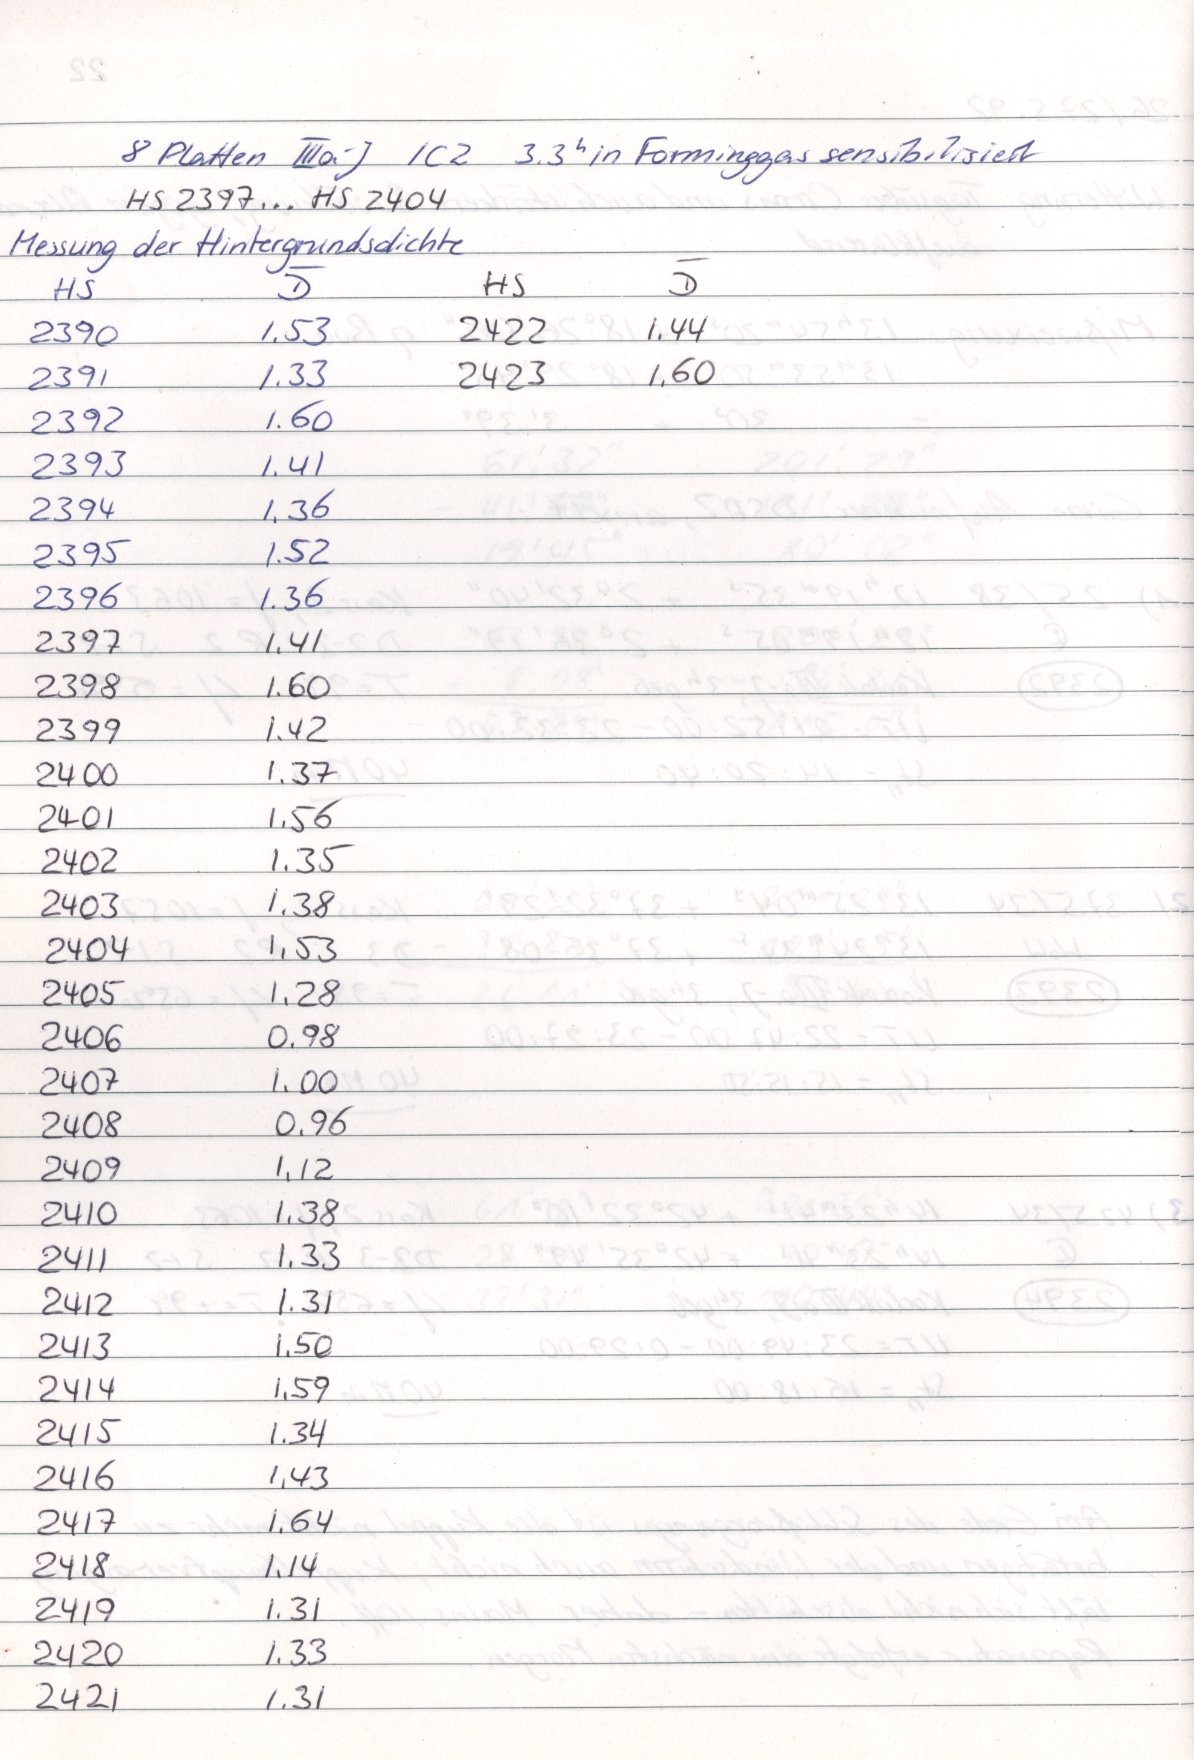 8 Platten IIIa-J 1C2 3.3ʰ in Forminggas sensibilisiert
HS 2397... HS 2404
Messung der Hintergrundsdichte
HS D̅ HS D̅
2390 1.53 2422 1.44
2391 1.33 2423 1.60
2392 1.60
2393 1.41
2394 1.36
2395 1.52
2396 1.36
2397 1.41
2398 1.60
2399 1.42
2400 1.37
2401 1.56
2402 1.35
2403 1.38
2404 1.53
2405 1.28
2406 0.98
2407 1.00
2408 0.96
2409 1.12
2410 1.38
2411 1.33
2412 1.31
2413 1.50
2414 1.59
2415 1.34
2416 1.43
2417 1.64
2418 1.14
2419 1.31
2420 1.33
2421 1.31